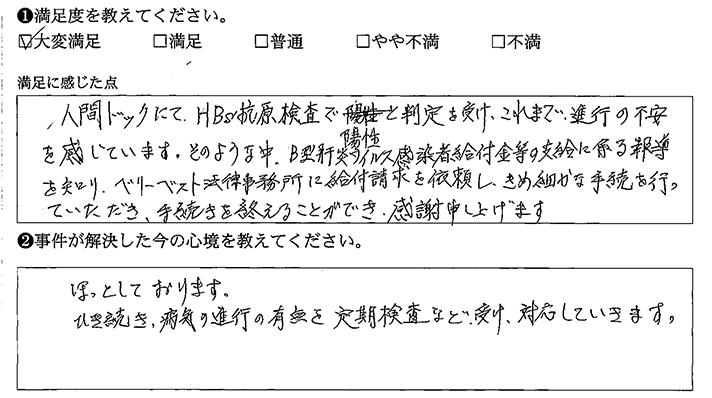 ❶満足度を教えてください。
☑大変満足 □満足 □普通 □やや不満 □不満
満足に感じた点
人間ドックにて、HBs抗原検査で陽性と判定を受け、これまで、進行の不安
を感じています。そのような中、B型肝炎ウイルス感染者給付金等の支給に係る報導
を知り、ベリーベスト法律事務所に給付請求を依頼し、きめ細かな手続を行っ
ていただき、手続きを終えることができ、感謝申し上げます
❷事件が解決した今の心境を教えてください。
ほっとしております。
ひき続き、病気の進行の有無を定期検査など、受け、対応していきます。